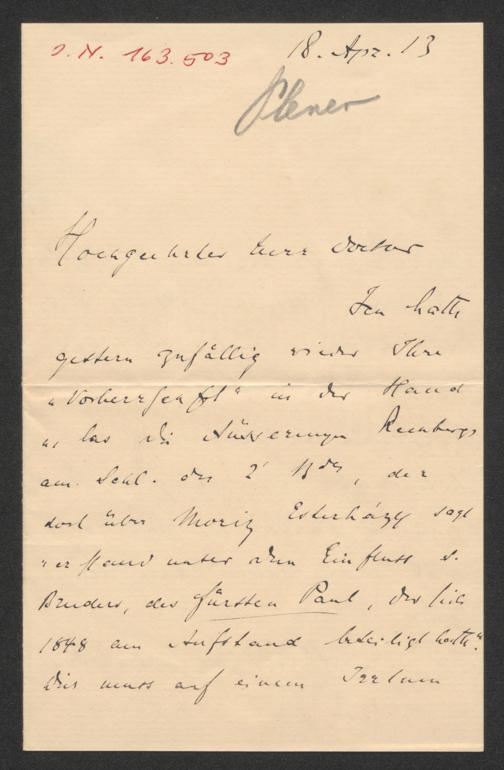 I.N. 163.503
18. Apr. 13
Plener
Hochgeehrter Herr Doctor
Ich hatte
gestern zufällig wieder Ihre
„Vorherrschaft" in der Hand
u. las die Äusserungen Rechbergs
am Schl. des 2' Bdes, der
dort über Moriz Esterházy sagt
„er stand unter dem Einfluss s.
Bruders, des Fürsten Paul, der sich
1848 am Aufstand beteiligt hatte".
Dies muss auf einem Irrtum